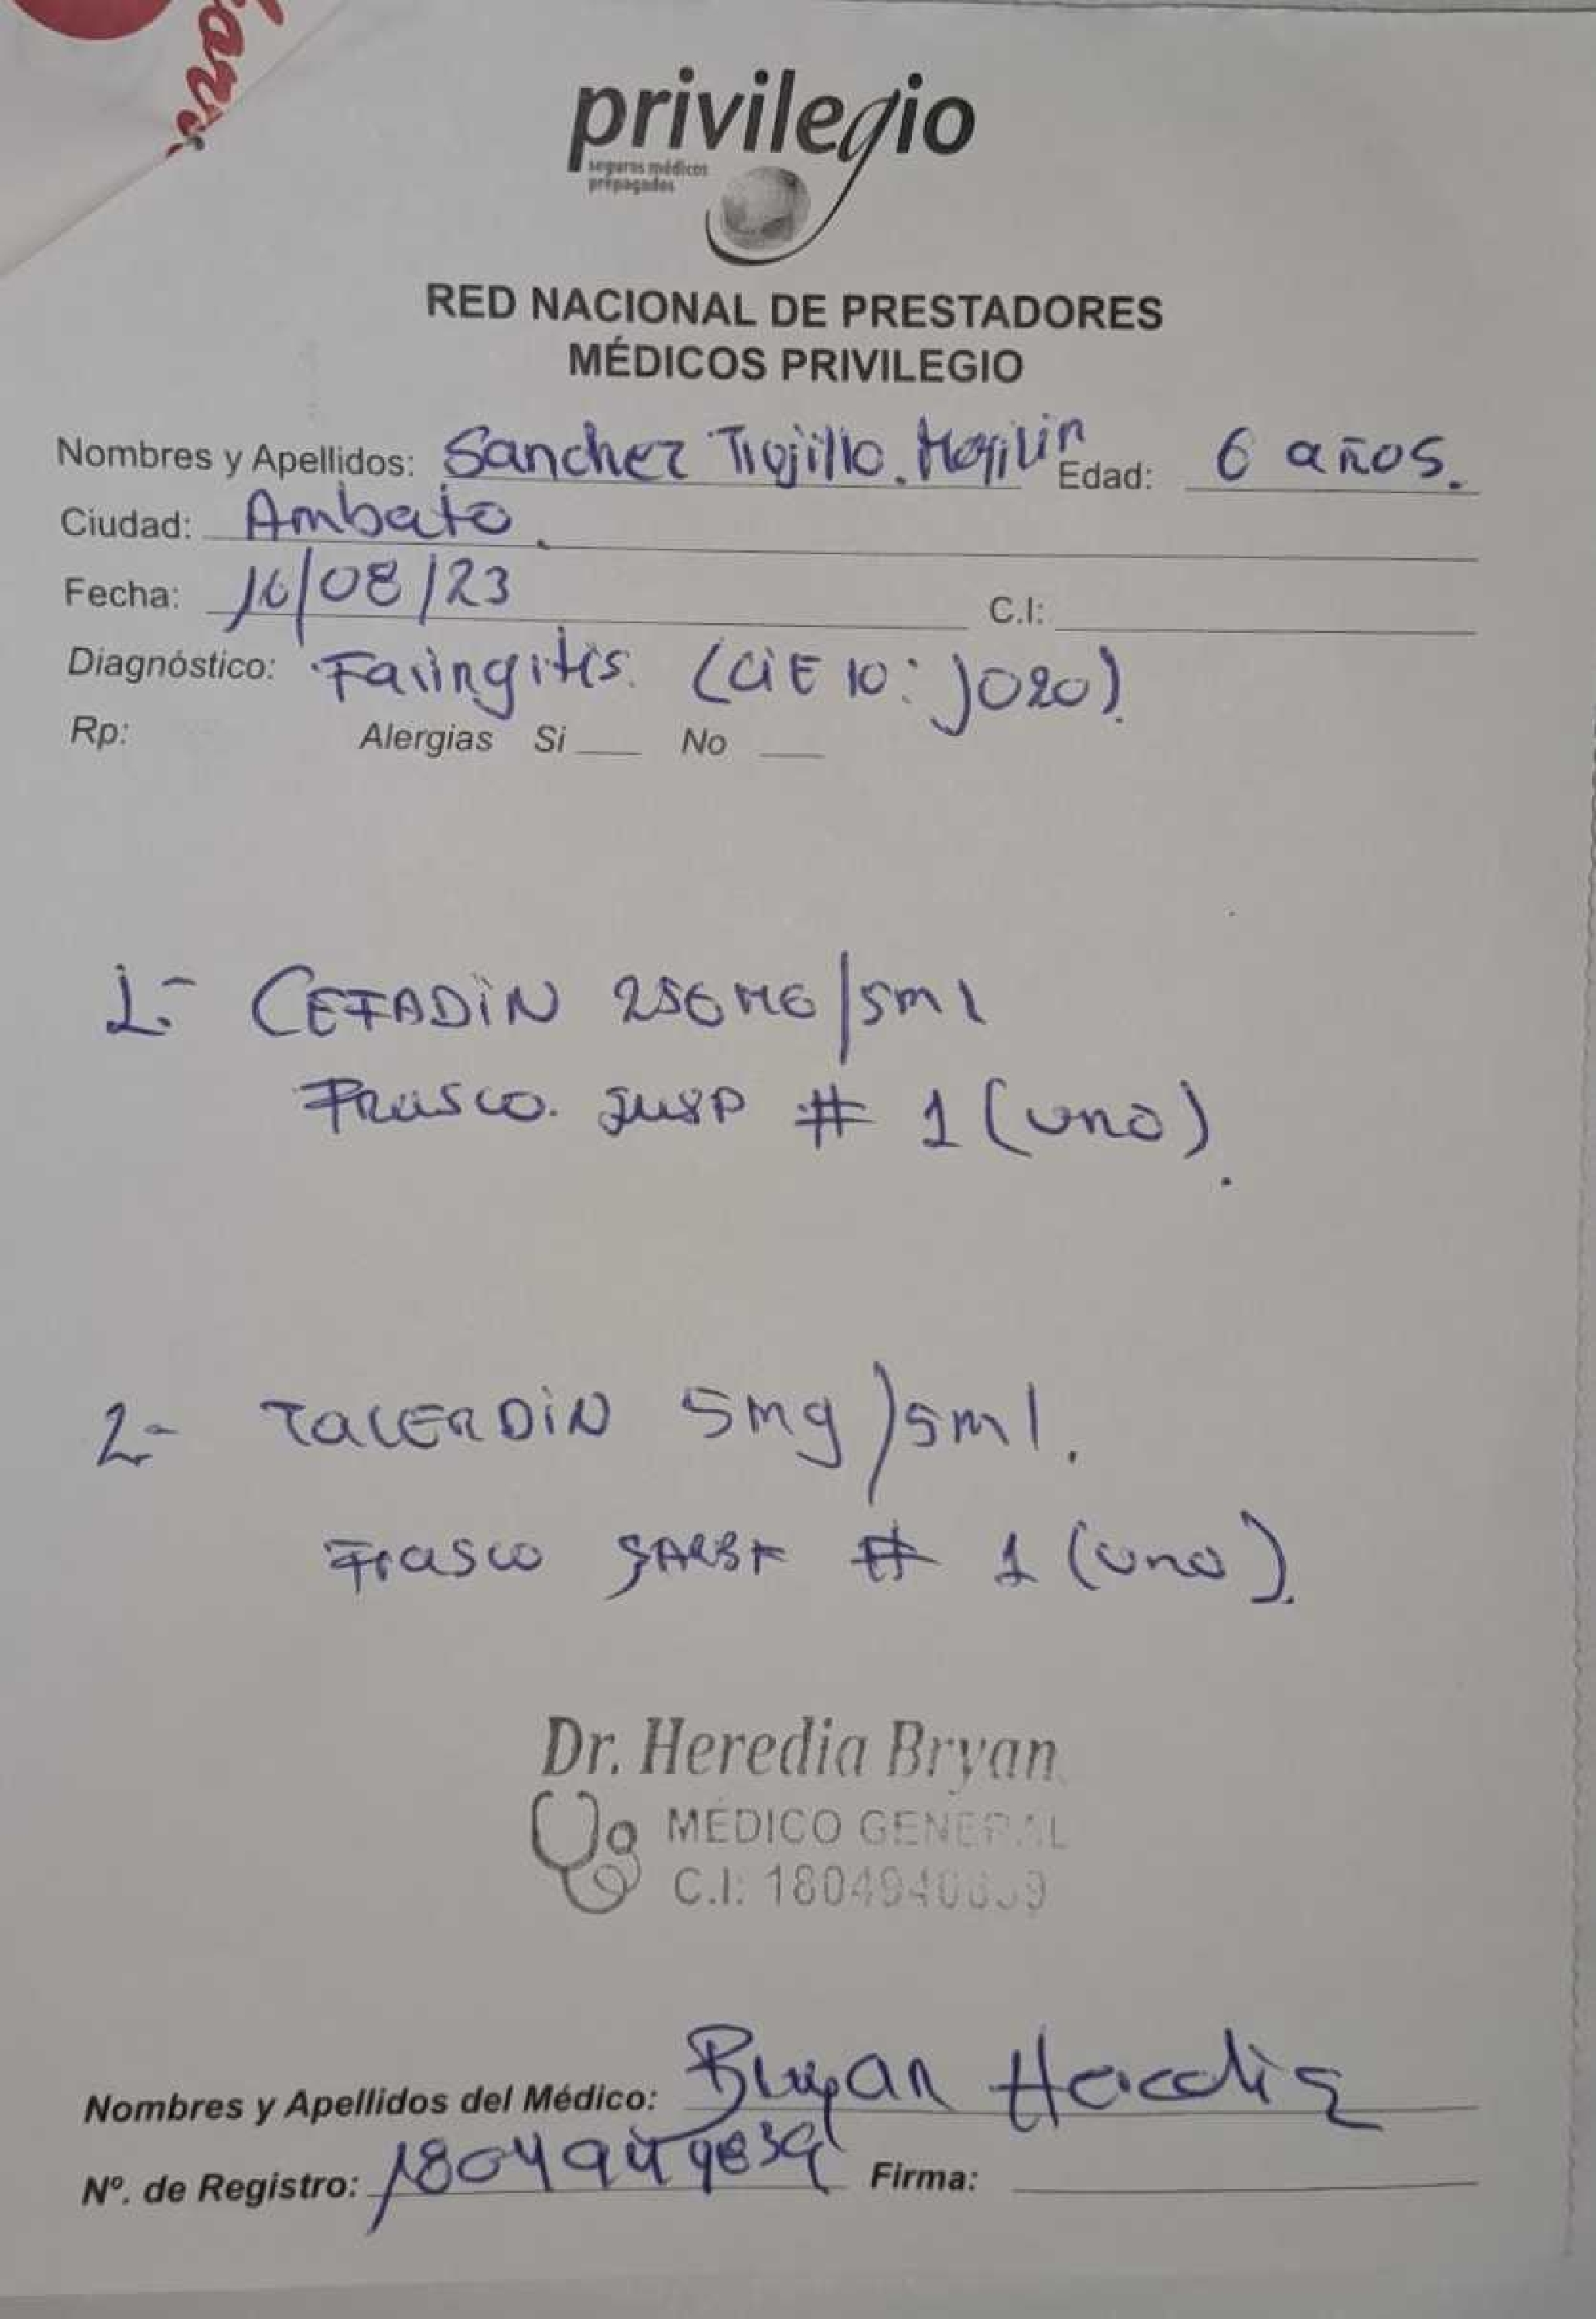 privilegio
seguros médicos
prepagados
RED NACIONAL DE PRESTADORES
MÉDICOS PRIVILEGIO
Nombres y Apellidos: Sanchez Trujillo. Edad: 6 años.
Ciudad: Ambato.
Fecha: 16/08/23 C.I:
Diagnóstico: Faringitis. (CiE 10: J020).
Rp: Alergias Si No
1.- CEFADiN 250MG/5ml
Frasco. susp # 1 (uno).
2- 5mg/5ml.
Frasco # 1 (uno).
Dr. Heredia Bryan
MÉDICO GENERAL
C.I:
Nombres y Apellidos del Médico: Bryan Heredia
Nº. de Registro: Firma: